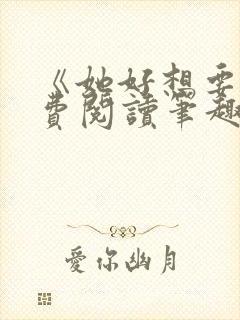 《她好想要
費閱讀筆趣
愛你幽月